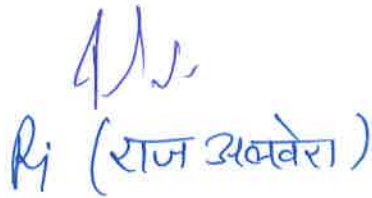 Rj (राज अलवेरा)